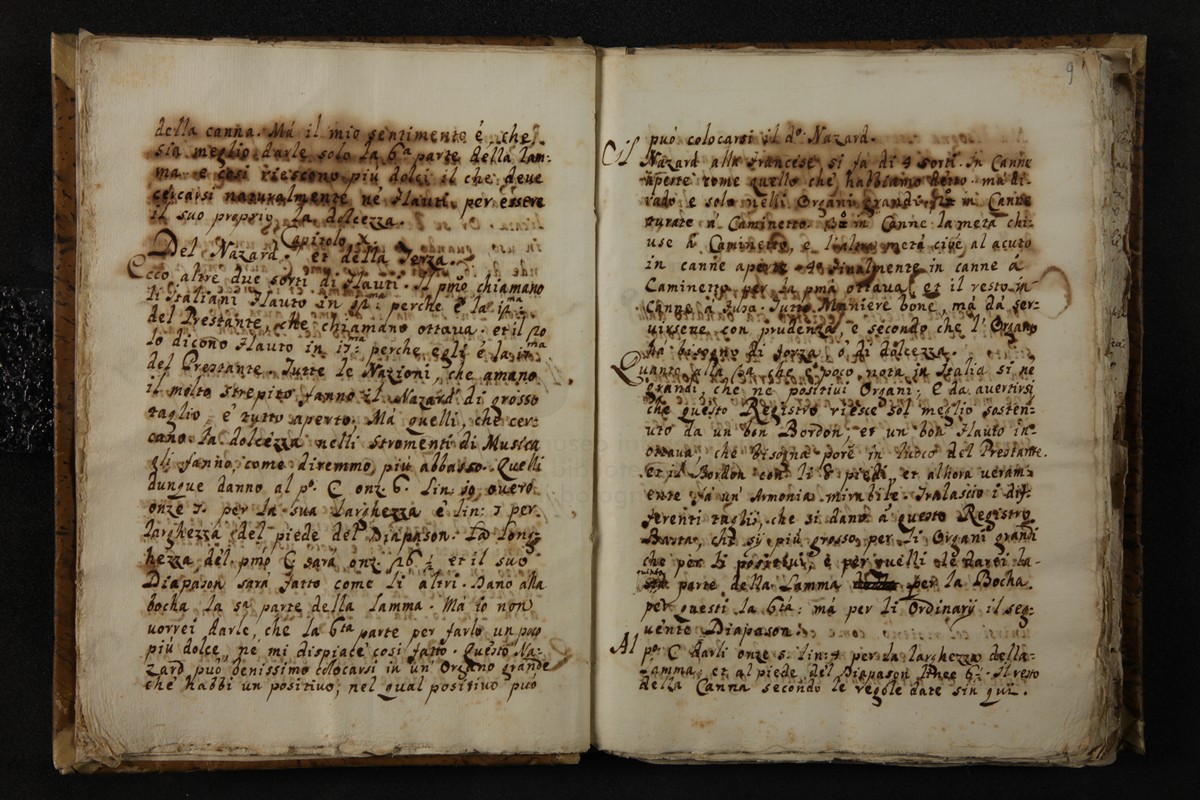 della canna. Má il mio sentimento é, che
sia meglio darle solo la 6ᵃ parte della lam=
ma e cosi riescono piú dolci il che deve
cercarsi naturalmente né flauti, per éssere
il suo proprio la dolcezza.
Capitolo X.
Del Nazard. et della Terza.
Ecco altre due sorti di flauti. Il pmo chiamano
li Italiani Flauto in perche é la
del Prestante, che chiamano ottava. et il
lo dicono Flauto in 17: perche egli é la
del Prestante. Tutte le Nazioni, che amano
il molto strepito fanno il Nazard di grosso
taglio, é tutto aperto. Má quelli, che cer=
cano la dolcezza nelli stromenti di Musica
gli fanno, come diremmo piú abbasso. Quelli
dunque danno al pº. C onz. 6. lin. 10, overo
onze 7. per la sua larghezza é lin: 7 per
larghezza del piede del Diapason. La long=
hezza del pmo C sará onz. 16 ½ et il suo
Diapason sará fatto come li altri. Dano alla
bocha la 5ᵃ parte della lamma. Má io non
vorrei darle, che la 6ta parte per farlo un poco
piú dolce, ne mi dispiace cosi fatto. Questo Na=
zard puó benissimo colocarsi in un' Organo grande
che habbi un positivo, nel qual positivo puó
9
puó colocarsi il dº. Nazard.
Il Nazard alla francese si fa di 4 sorti. In Canne
aperte come quello che habbiamo detto. ma di
rado, e solo nelli Organi grandi. in Canne
turate á Caminetto. in Canne la metá chi=
use á Caminetto, e l'altra metá cioé al acuto
in canne aperte. finalmente in canne á
Caminetto per la pma ottava, et il resto in
canne á fuso. Tutte Maniere bone, má da ser=
virsene con prudenza, e secondo che l' Organo
há bisogno di forza, ó di dolcezza.
Quanto alla che é poco nota in Italia si né
grandi, che ne positivi Organi; E da avertirsi
che questo Registro riesce sol meglio sosten=
uto da un bon Bordon, et un bon flauto in
ottava, che bisogna pore in luoco del Prestante.
et il Bordon con li 8 piedi, et alhora veram=
ente fá un' Armonia mirabile. Tralascio i dif=
ferenti taglij, che si dano á questo Registro
Basta, che sij piú grosso per li Organi grandi
che per li positivi, é per quelli le darei la
quinta parte della Lamma per la Bocha.
per questi la 6tá: má per li Ordinarij il seg=
uente Diapason.
Al pº. C darli onze 5. lin: 4 per la larghezza della
lamma, et al piede del Diapason linee 6½. Il resto
della Canna secondo le regole date sin quí.